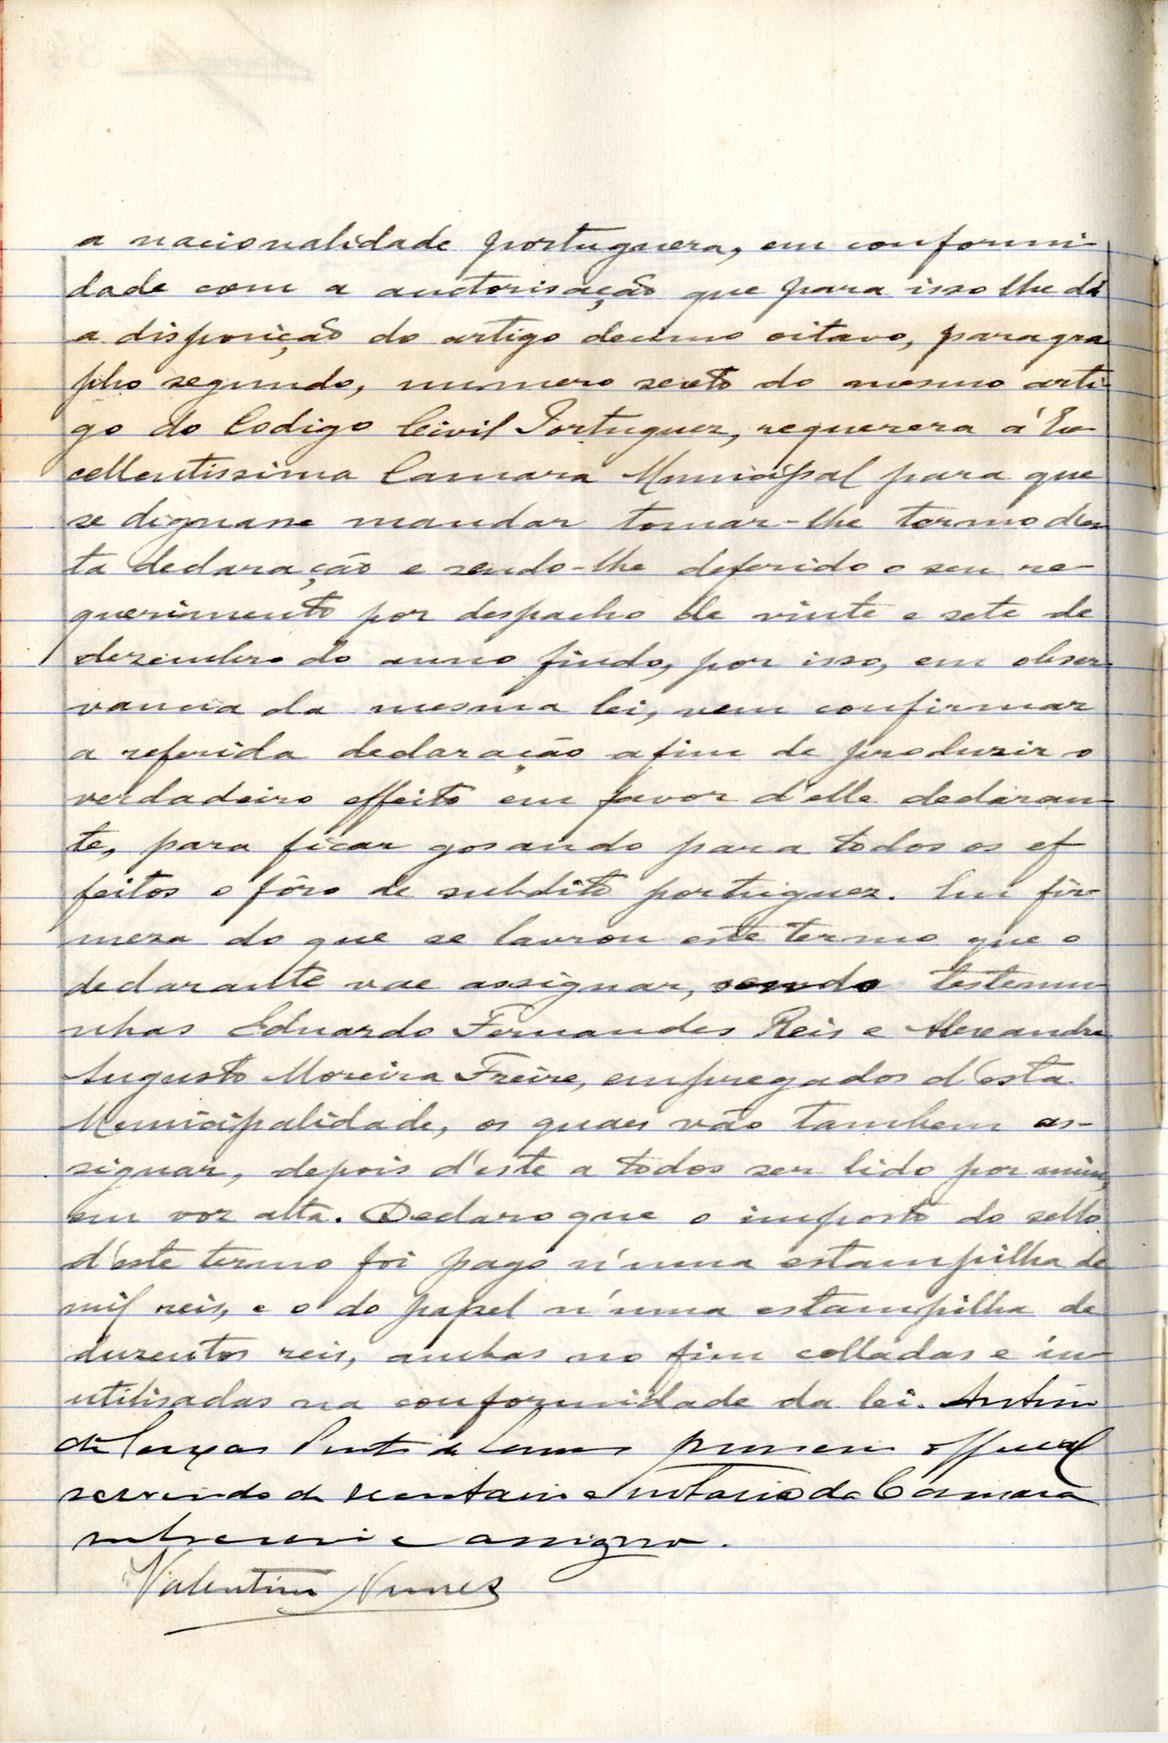 a nacionalidade portugueza, em conformi-
dade com a auctorisação que para isso lhe dá
a disposição do artigo decimo oitavo, paragra
pho segundo, numero sexto do mesmo arti-
go do Codigo Civil Portuguez, requerera á Ex-
cellentissima Camara Municipal para que
se dignasse mandar tomar-lhe termo d'es-
ta declaração e sendo-lhe deferido o seu re-
querimento por despacho de vinte e sete de
dezembro do anno findo, por isso, em obser-
vancia da mesma lei, vem confirmar
a referida declaração afim de produzir o
verdadeiro effeito em favor d'elle declaran-
te, para ficar gosando para todos os ef
feitos o fôro de subdito portuguez. Em fir-
meza do que se lavrou este termo que o
declarante vae assignar, sendo testemu-
nhas Eduardo Fernandes Reis e Alexandre
Augusto Moreira Freire, empregados d'esta
Municipalidade, os quaes vão tambem as-
signar, depois d'este a todos ser lido por mim,
em voz alta. Declaro que o imposto do sello
d'este termo foi pago n'uma estampilha de
mil reis, e o do papel n'uma estampilha de
duzentos reis, ambas no fim colladas e in-
utilisadas na conformidade da lei. Antonio
de primeiro official
servindo de secretario e notario da Camara
subscrevi e assigno.
Valentim Nunes